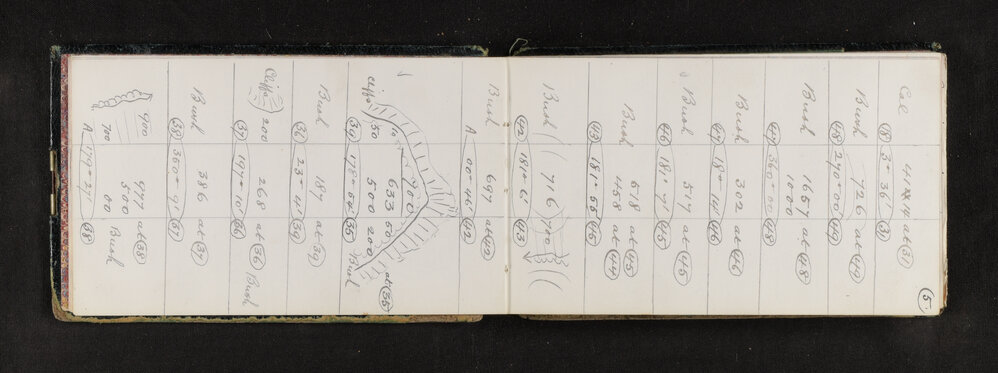 5
Cal at (31)
(18) 3° 36' (31)
Bush 726 at (49)
(48) 270° 00 (49)
Bush 1657 at (48)
1000
(47) 360° 00 (48)
Bush 302 at (46)
(47) 180° 14' (46)
Bush 517 at (45)
(46) 181° 7' (45)
Bush 578 at (45)
458 at (44)
(43) 181° 55' (45)
Bush 716 70
(42) 181° 6' (43)
Bush 697 at (42)
A 00° 46' (42)
at (35)
Cliffs 50 to 200 50
633
500 200 Bush
(34) 178° (35)
Bush 187 at (34)
(36) 23° 42' (34)
Cliffs 200 268 at (36) Bush
(37) 197° 10' (36)
Bush 386 at (37)
(38) 360° 41' (37)
900 977 at (38)
700 500
00 Bush
A 179° 27' (38)